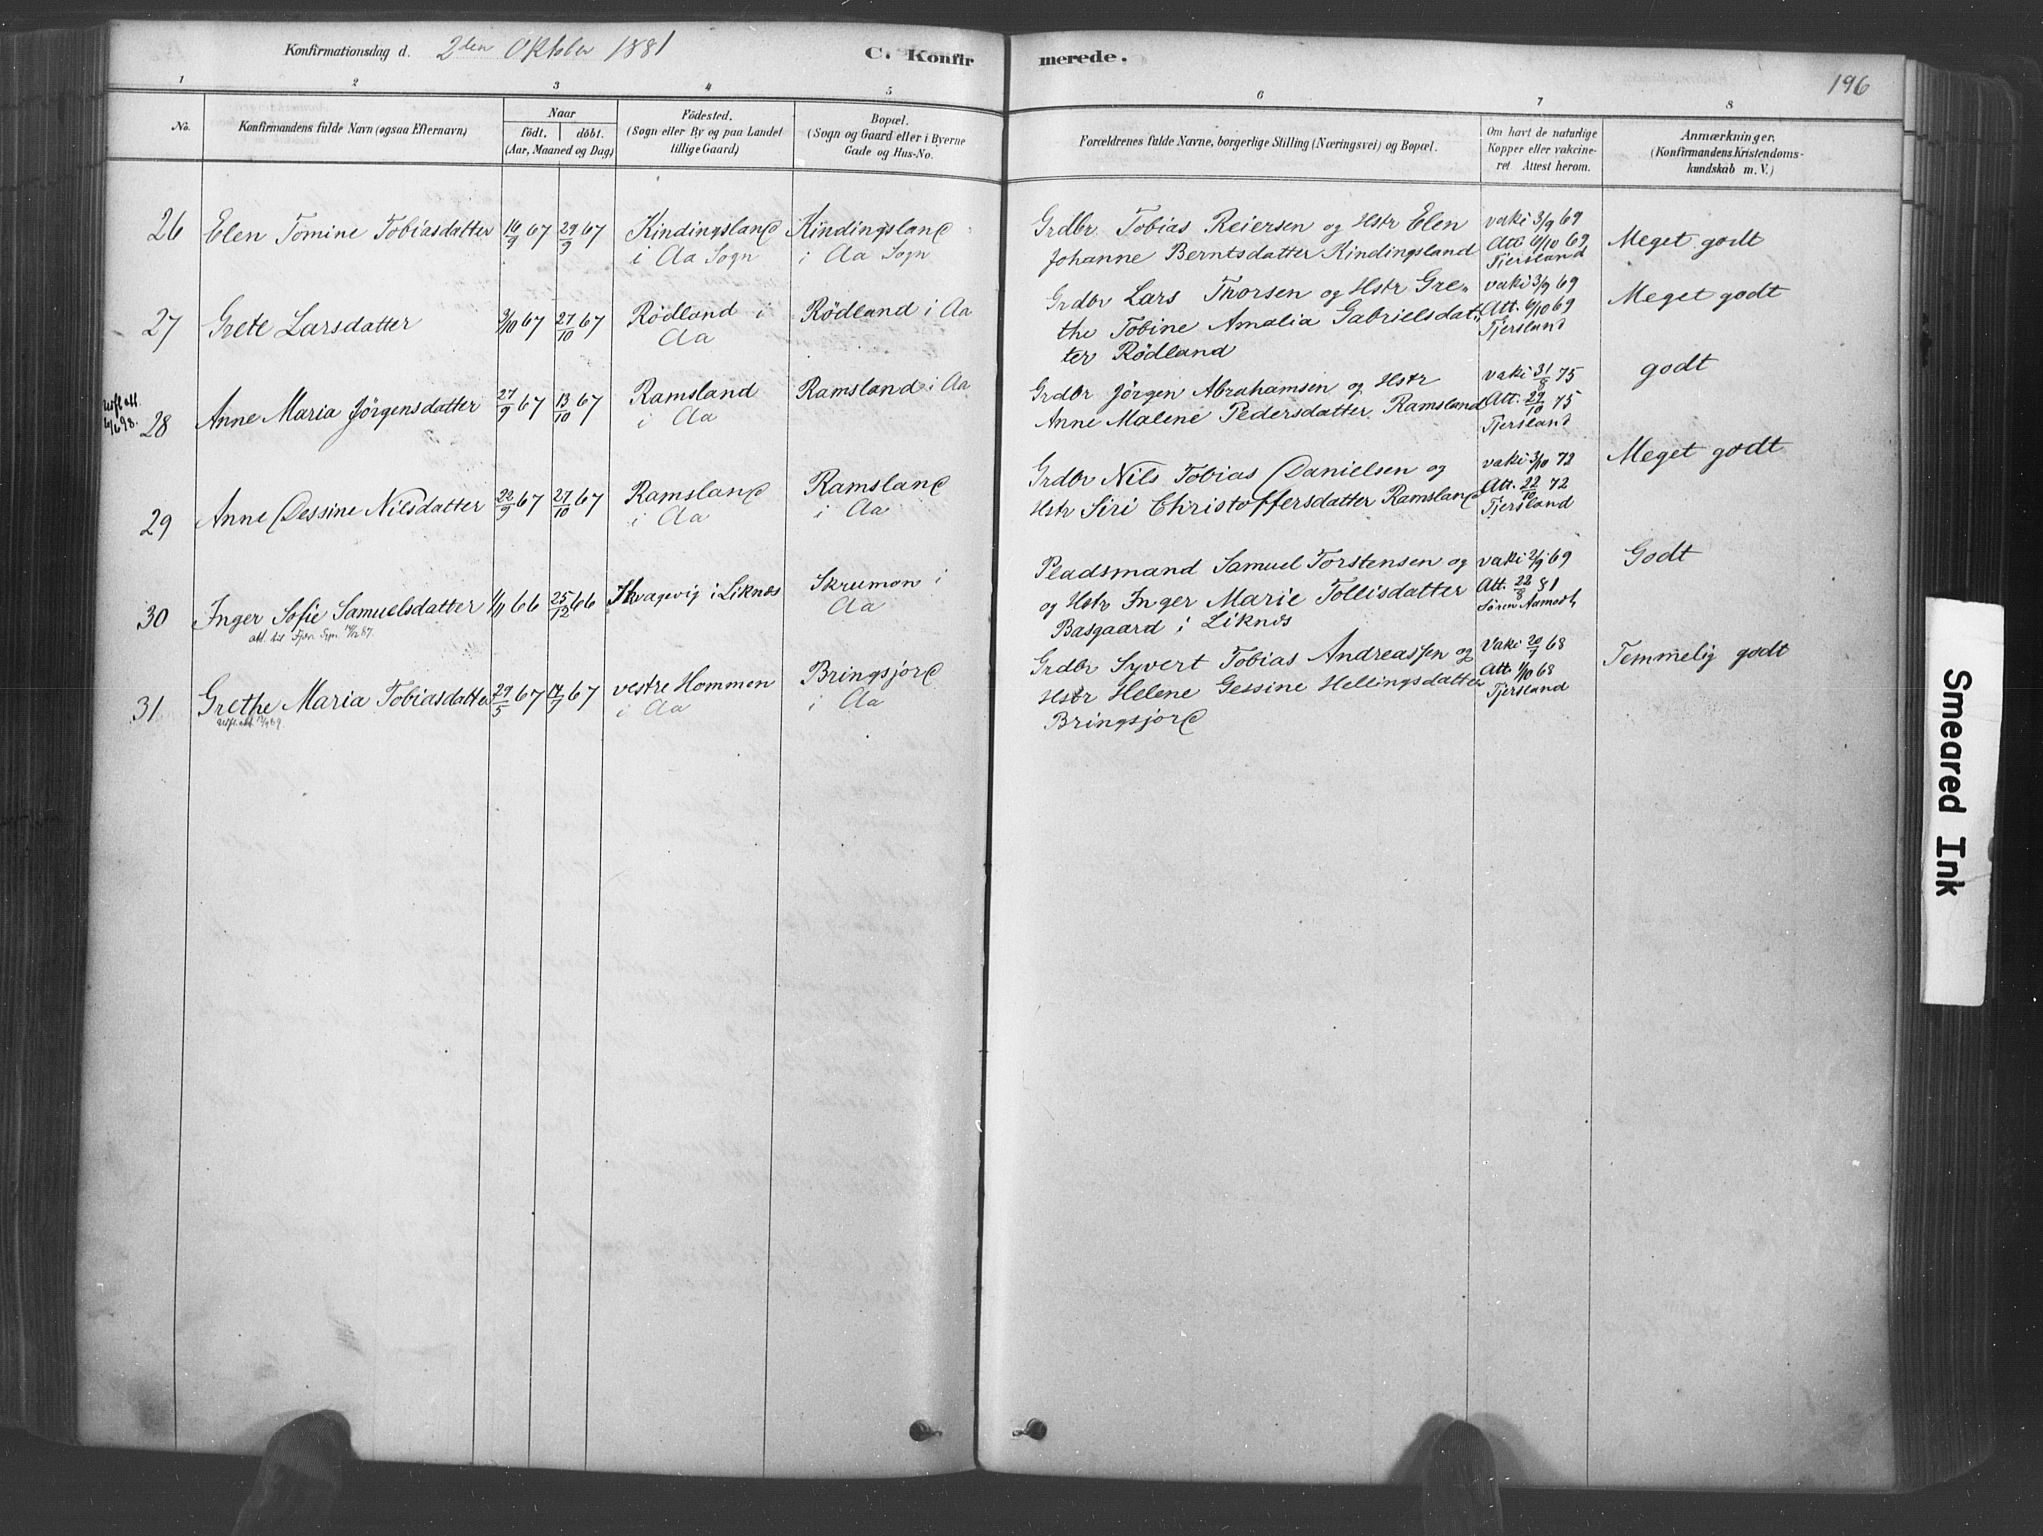 Konfirmationsdag d. 2den Oktober 1881 C. Konfirmerede. 196
1 2 3 4 5 6 7 8
No.
Konfirmandens fulde Navn (ogsaa Efternavn)
Naar
födt. döbt.
(Aar, Maaned og Dag)
Födested.
(Sogn eller By og paa Landet
tillige Gaard)
Bopæl.
(Sogn og Gaard eller i Byerne
Gade og Hus-No.
Forældrenes fulde Navne, borgerlige Stilling (Næringsvei) og Bopæl.
Om havt de naturlige
Kopper eller vakcine-
ret Attest herom.
Anmærkninger.
(Konfirmandens Kristendoms-
kundskab m. V.)
26 Elen Tomine Tobiasdatter 16/9 67 29/9 67
Kindingsland
i Aa Sogn
Kindingsland
i Aa Sogn
Grdbr Tobias Reiersen og Hstr Elen
Johanne Berntsdatter Kindingsland
vaki 3/9 69
Att. 6/10 69
Tjersland
Meget godt
27 Grete Larsdatter 3/10 67 27/10 67
Rödland i
Aa
Rödland i Aa
Grdbr Lars Thorsen og Hstr Gre-
the Tobine Amalia Gabrielsdat-
ter Rödland
vaki 3/9 69
Att. 6/10 69
Tjersland
Meget godt
28 Anne Maria Jörgensdatter 27/9 67 13/10 67
Ramsland
i Aa
Ramsland i Aa
Grdbr Jörgen Abrahamsen og Hstr
Anne Malene Pedersdatter Ramsland
vaki 31/8 75
Att. 29/10 75
Tjersland
godt
29 Anne Dessine Nilsdatter 22/9 67 27/10 67
Ramsland
i Aa
Ramsland
i Aa
Grdbr Nils Tobias Danielsen og
Hstr Siri Christoffersdatter Ramsland
vaki 3/10 72
Att. 22/10 72
Tjersland
Meget godt
30 Inger Sofie Samuelsdatter 1/11 66 25/12 66
Kvagevig i Liknes
Skrumon i
Aa
Pladsmand Samuel Torstensen og
og Hstr Inger Marie Tollisdatter
Basgaard i Liknes
vaki 2/9 69
Att. 22/8 81
Sören Aamodt
Godt
31 Grethe Maria Tobiasdatter 29/5 67 14/7 67
vestre Hommen
i Aa
Bringsjord
i Aa
Grdbr Syvert Tobias Andreassen og
Hstr Helene Gessine Hellingsdatter
Bringsjord
Vaki 20/7 68
Att. 1/10 68
Tjersland
Temmelig godt
Smeared Ink